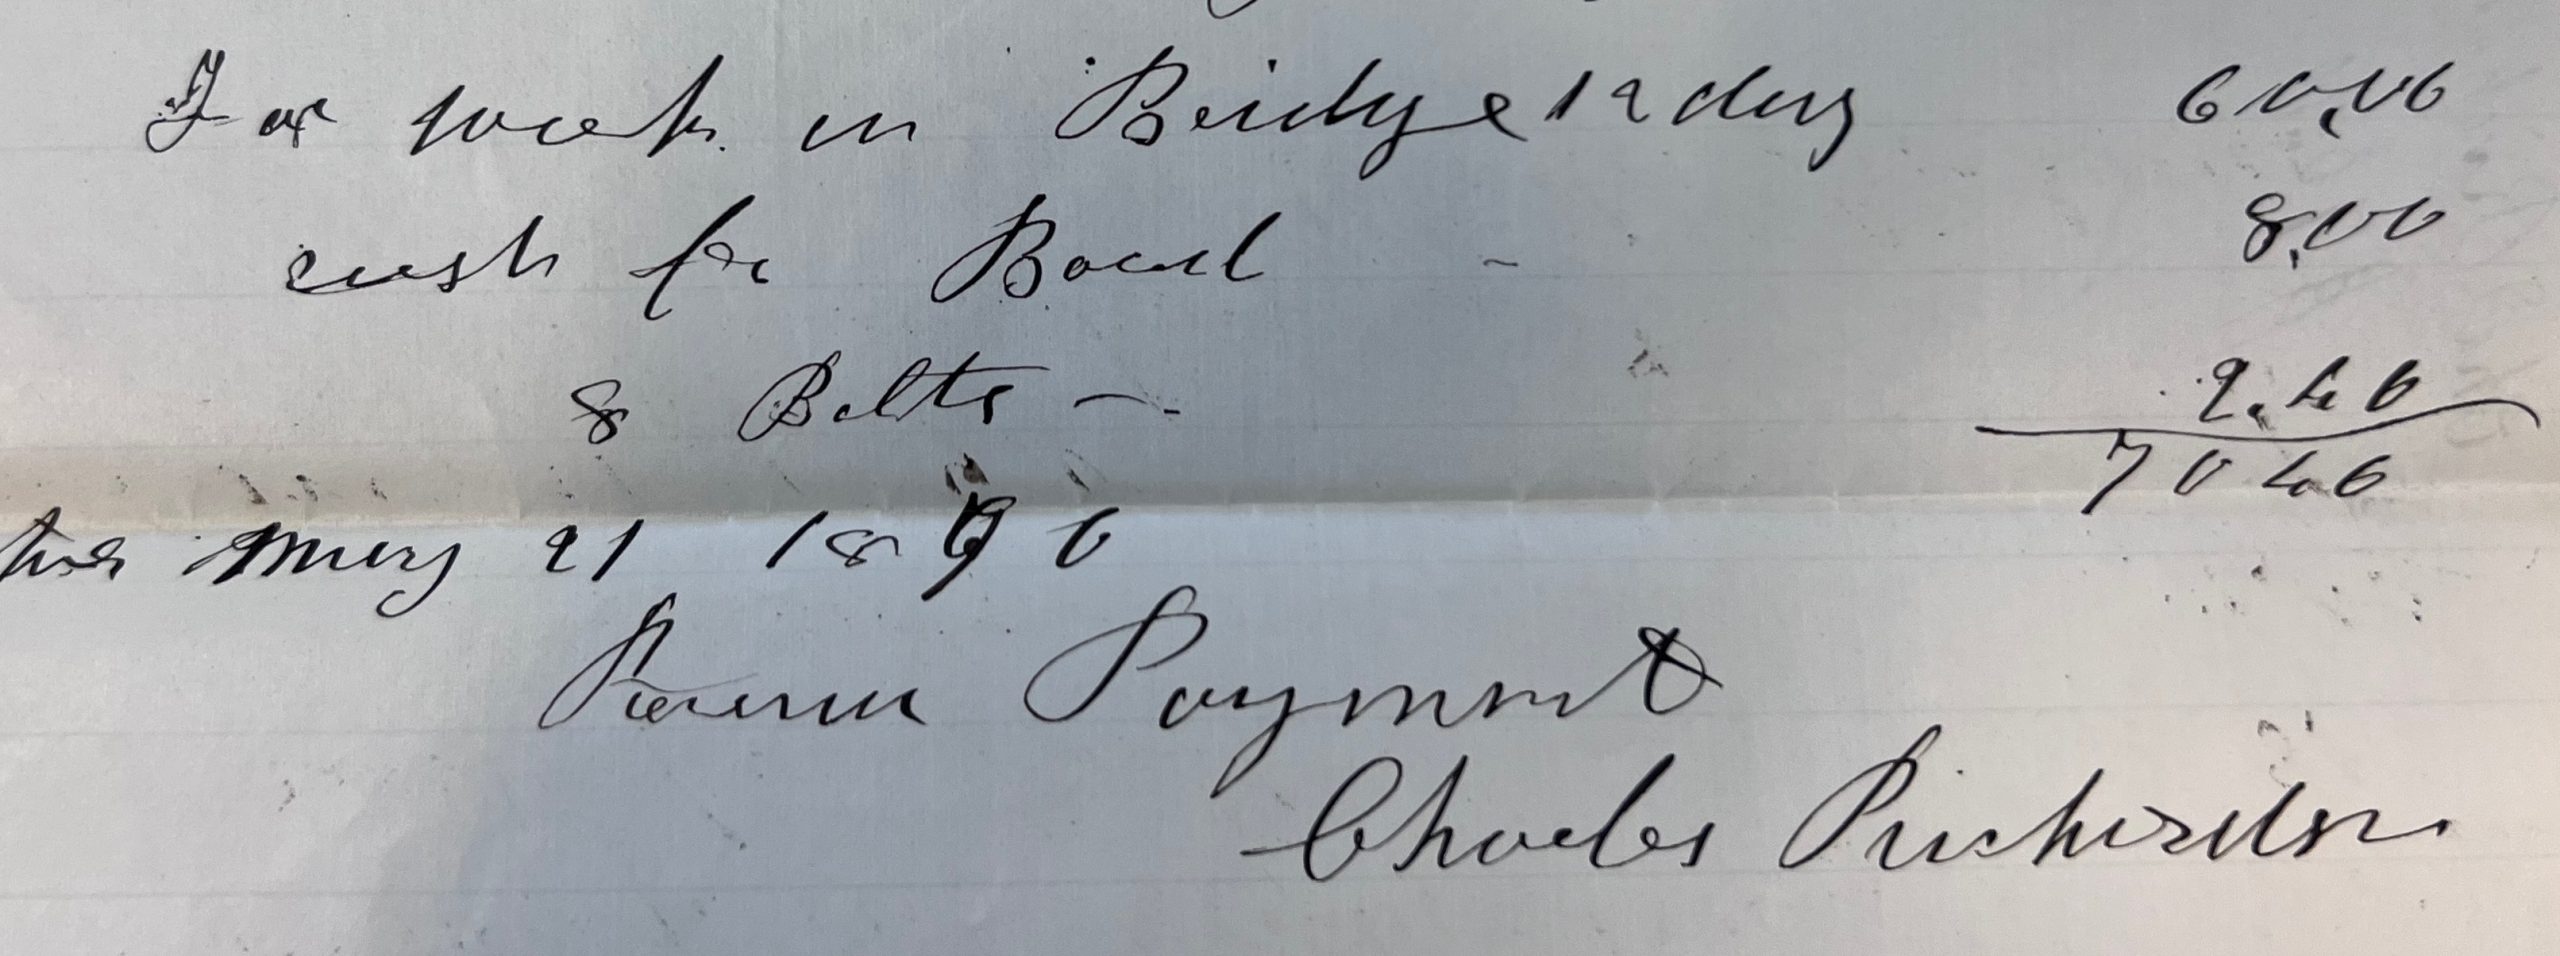 For work on Bridge 12 days 60,00
cash for Board - 8,00
8 Bolts - 2.40
70 40
May 21 1890
Received Payment
Charles Richardson